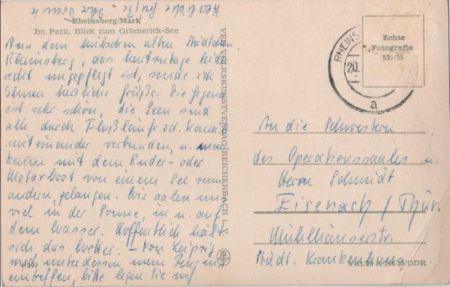 Rheinsberg/Mark
Im Park, Blick zum Grienerick-See
Aus dem hübschen alten Städtchen
Rheinsberg, das heutzutage leider
recht ungepflegt ist, sende ich
Ihnen herzliche Grüße. Die Gegend
ist sehr schön, die Seen sind
alle durch Flußläufe od. Kanäle
miteinander verbunden, u. man
kann mit dem Ruder- oder
Motorboot von einem See zum
andern gelangen. Wir aalen uns
viel in der Sonne, in u. auf
dem Wasser. Hoffentlich hält
sich das Wetter. - Von Leipzig
wird unterdessen mein Zeugnis
eintreffen, bitte legen Sie
RHEINS
20.
a
Echte
Fotografie
531/55
An die Schwestern
des Operationssaales u.
Herrn Schmidt
Eisenach/Thür.
Mühlhäuserstr.
Städt. Krankenhaus